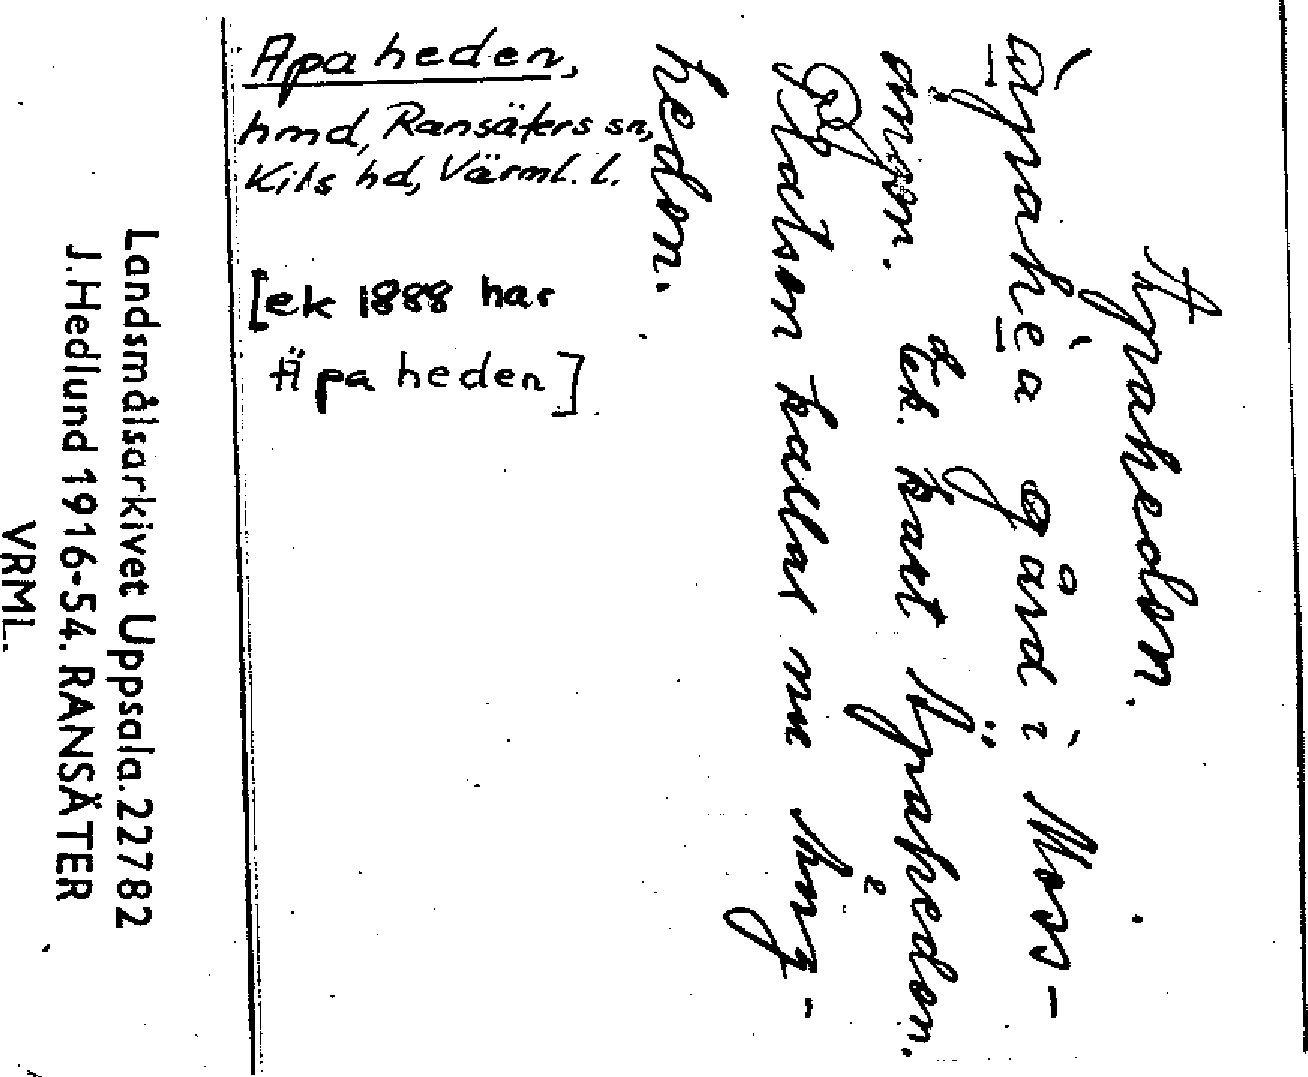 Apaheden,
hmd, Ransäters sn,
Kils hd, Värml. l.
[ek 1888 har
Äpaheden]
Apaheden.
gård i Moss-
Ek. kart Äpaheden.
Platsen kallas nu ling-
heden.
Landsmålsarkivet Uppsala. 22782
J. Hedlund 1916-54. RANSÄTER
VRML.